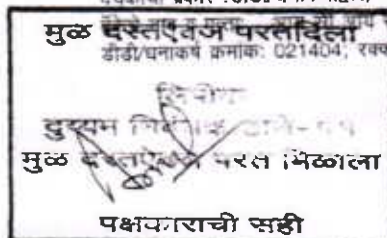 मुळ दस्तऐवज परत दिला
डीडी/धनाकर्ष क्रमांक: 021404; रक्क
लिपीक
दुय्यम
मुळ दस्तऐवज परत मिळाला
पक्षकाराची सही